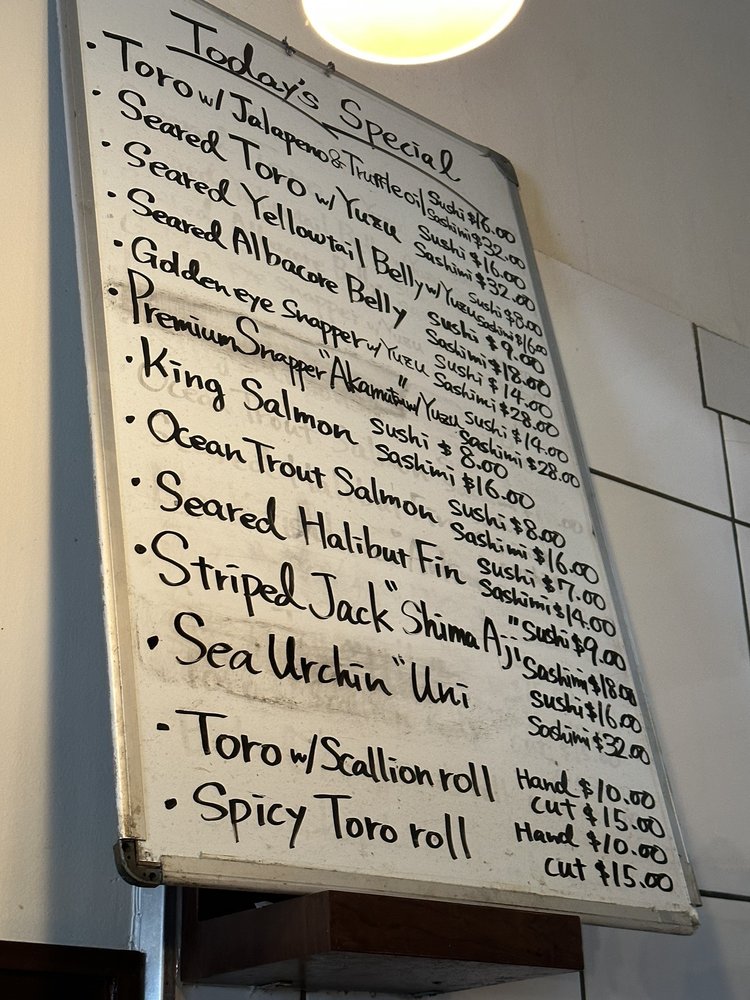 Today's Special
• Toro w/ Jalapeno & Truffle oil Sushi $16.00
Sashimi $32.00
• Seared Toro w/ Yuzu Sushi $16.00
Sashimi $32.00
• Seared Yellowtail Belly w/ Yuzu Sushi $8.00
Sashimi $16.00
• Seared Albacore Belly Sushi $9.00
Sashimi $18.00
• Goldeneye Snapper w/ Yuzu Sushi $14.00
Sashimi $28.00
• Premium Snapper "Akamutsu" w/ Yuzu Sushi $14.00
Sashimi $28.00
• King Salmon Sushi $8.00
Sashimi $16.00
• Ocean Trout Salmon Sushi $8.00
Sashimi $16.00
• Seared Halibut Fin Sushi $7.00
Sashimi $14.00
• Striped Jack "Shima Aji" Sushi $9.00
Sashimi $18.00
• Sea Urchin "Uni Sushi $16.00
Sashimi $32.00
• Toro w/ Scallion roll Hand $10.00
Cut $15.00
• Spicy Toro roll Hand $10.00
Cut $15.00